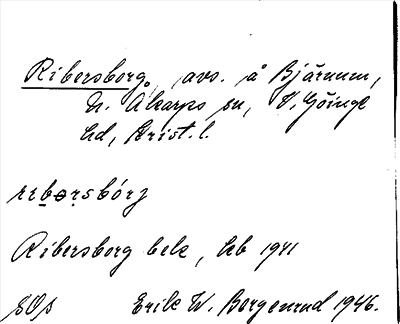 Ribersborg, avs. å Bjärnum,
N. Åkarps sn, V. Göinge
hd, Krist. l.
ribərsbórj
Ribersborg bek, hb 1941
SOp Erik W. Borgenrud 1946.